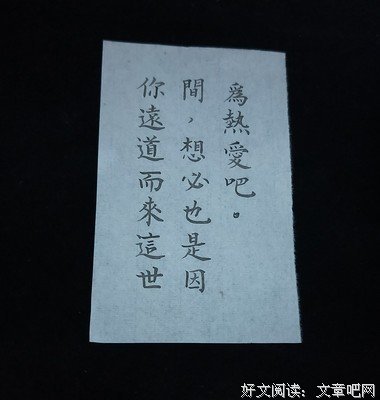 你遠道而來這世
間，想必也是因
爲熱愛吧。
好文阅读：文章吧网